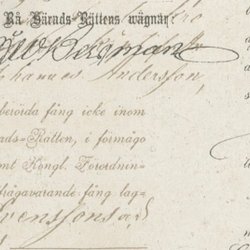 På Härads-Rättens wägnar:
Bergman
Johannes Andersson,
berörda fång icke inom
ads-Rätten, i förmågo
mt Kongl. Förordnin-
ifrågavarande fång lag-
Svensson